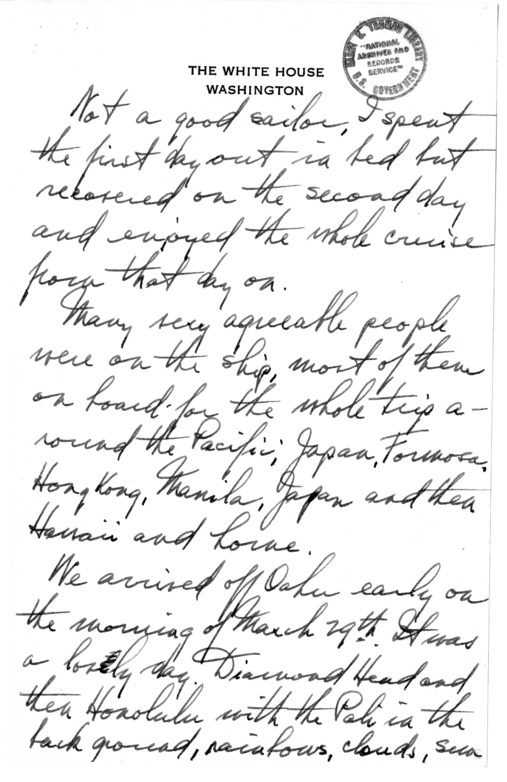 THE WHITE HOUSE
WASHINGTON
HARRY S. TRUMAN LIBRARY
"NATIONAL
ARCHIVES AND
RECORDS
SERVICE"
U.S. GOVERNMENT
Not a good sailor, I spent
the first day out in bed but
recovered on the second day
and enjoyed the whole cruise
from that day on.
Many very agreeable people
were on the ship, most of them
on board for the whole trip a-
round the Pacific; Japan, Formosa,
Hong Kong, Manila, Japan and then
Hawaii and home.
We arrived off Oahu early on
the morning of March 29th. It was
a lovely day. Diamond Head and
then Honolulu with the Pali in the
back ground, rainbows, clouds, sun